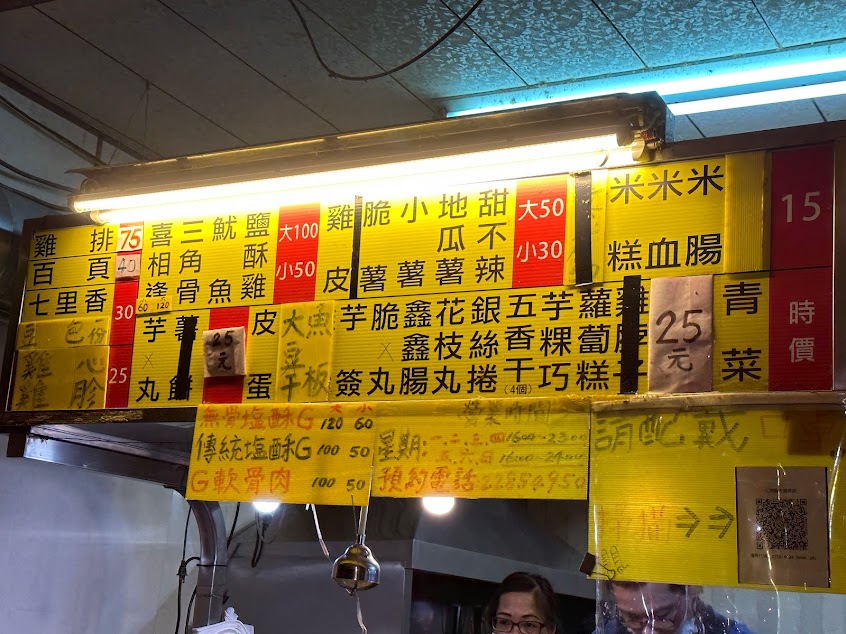 雞排 75
百頁 40
七里香 30
豆包
雞心
雞胗
25
喜相逢
60 120
三角骨
魷魚
鹽酥雞
大100
小50
雞皮
脆薯
小薯
地瓜薯
甜不辣
大50
小30
米糕
米血
米腸
15
芋丸
薯餅
25元
皮蛋
大豆干
魚板
芋簽
脆丸
鑫鑫腸
花枝丸
銀絲捲
五香干
(4個)
芋粿巧
蘿蔔糕
25元
青菜
時價
無骨塩酥G 120 60
傳統塩酥G 100 50
G軟骨肉 100 50
營業時間
星期:一.二.三.四 1600-2300
五.六.日 1600-2400
預約電話:22854950
請配戴
掃